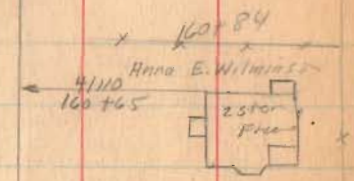 160+84
Anna E. Wilmins
41110
160+65
2 stor
Fra